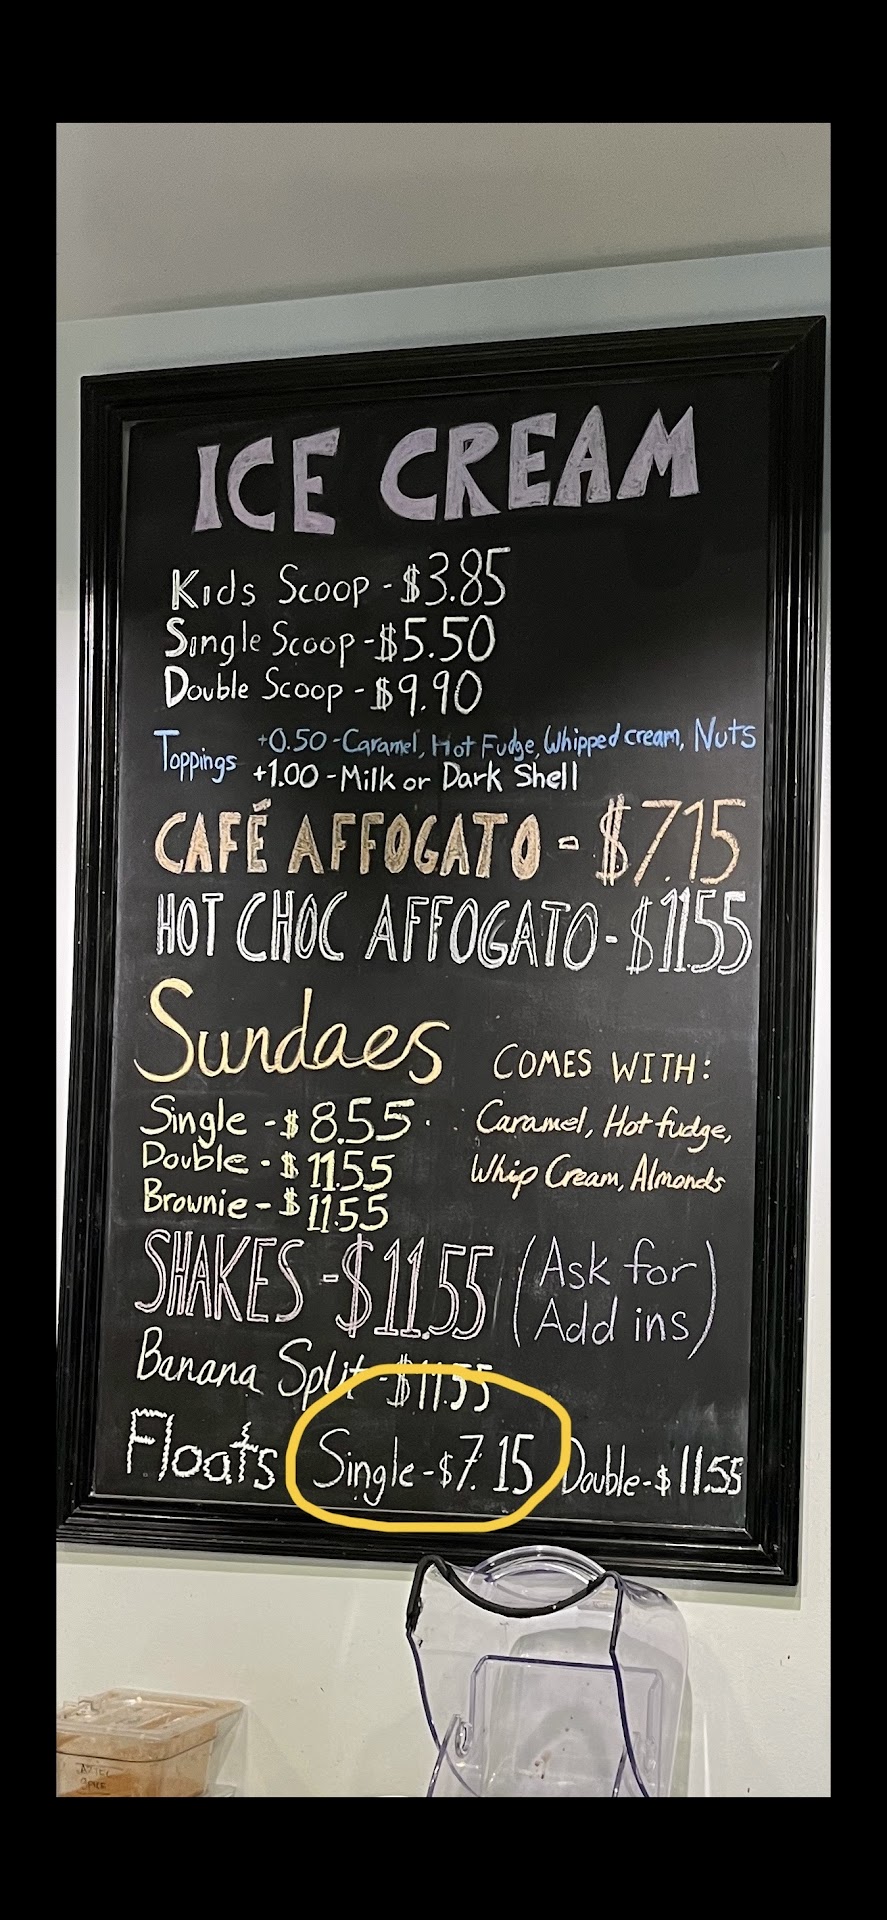 ICE CREAM
Kids Scoop - $3.85
Single Scoop - $5.50
Double Scoop - $9.90
Toppings +0.50 - Caramel, Hot Fudge, Whipped cream, Nuts
+1.00 - Milk or Dark Shell
CAFÉ AFFOGATO - $7.15
HOT CHOC AFFOGATO - $11.55
Sundaes
COMES WITH:
Single - $8.55
Caramel, Hot fudge,
Double - $11.55
Whip Cream, Almonds
Brownie - $11.55
SHAKES - $11.55 (Ask for
Add ins)
Banana Split - $11.55
Floats Single - $7.15 Double - $11.55